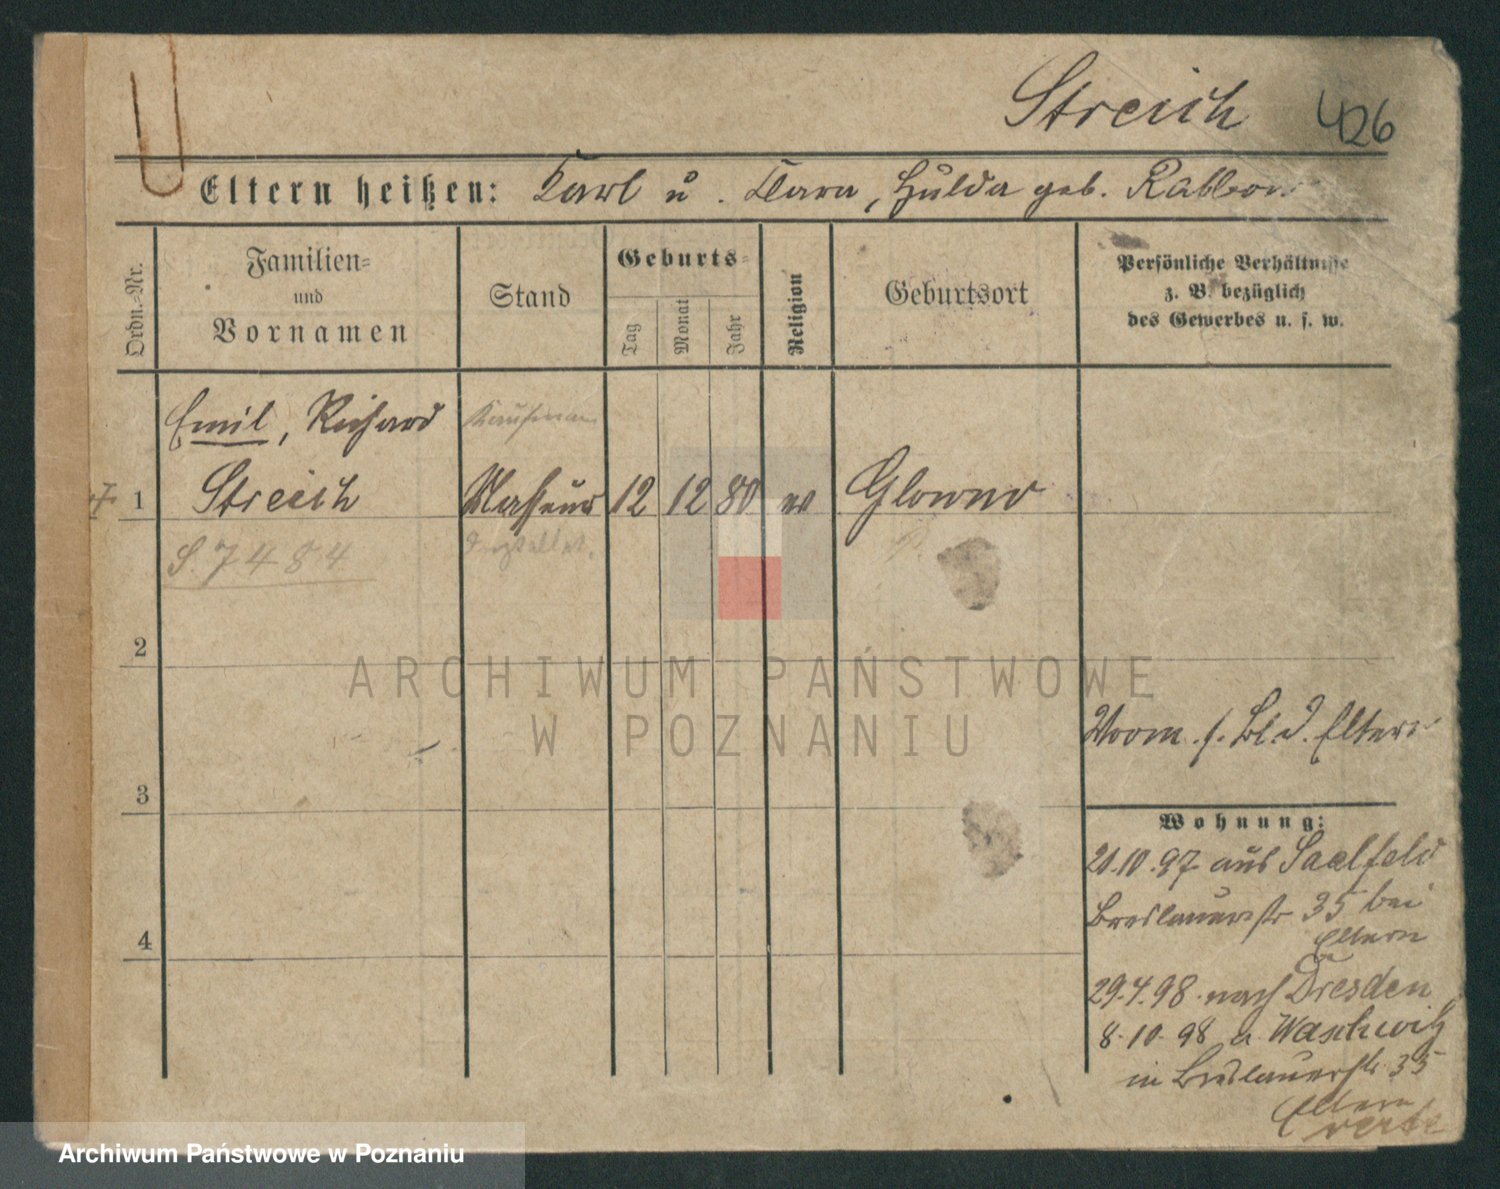 Streich 426
Eltern heißen: Karl u. Clara, Hulda geb. Rabbow
Ordn.-Nr.
Familien-
und
Vornamen
Stand
Geburts-
Tag
Monat
Jahr
Religion
Geburtsort
Persönliche Verhältnisse
z. B. bezüglich
des Gewerbes u. s. w.
Emil, Richard Kaufmann
1 Streich Masseur 12 12 80 ev Glowno
S. 7484
2
ARCHIWUM PAŃSTWOWE
W POZNANIU
Vorm. s. Bl. d. Eltern
3
Wohnung:
21.10.97 aus Saalfeld
Breslauerstr 35 bei
Eltern
4
29.4.98 nach Dresden
8.10.98 a
in Breslauerstr 35
Eltern
Archiwum Państwowe w Poznaniu